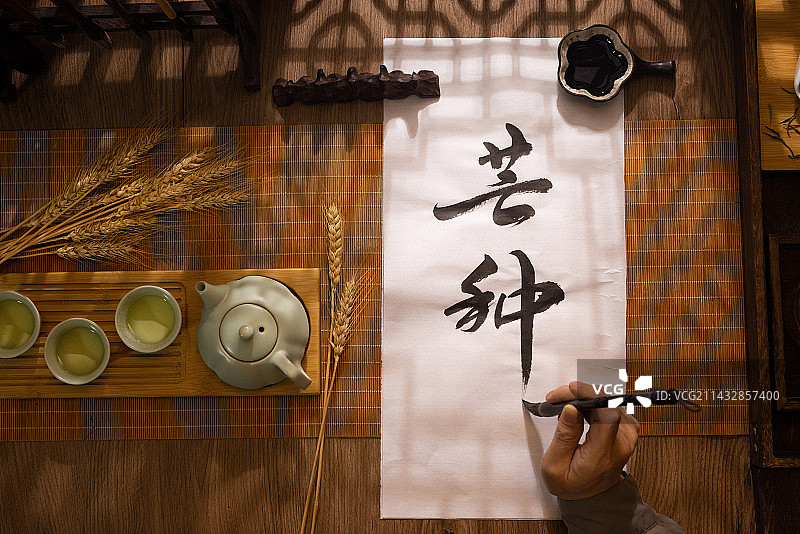 芒
种
VCG
VCG211432857400